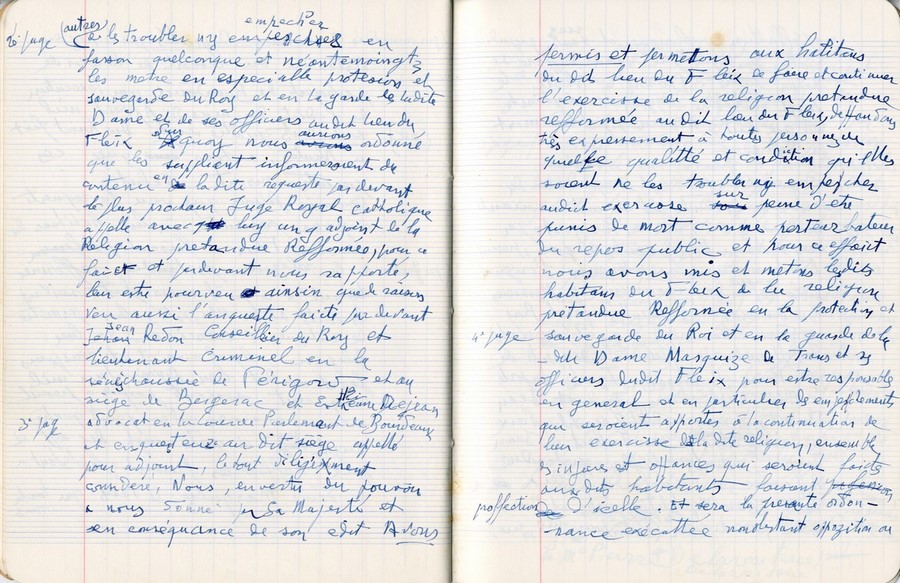 2e page
(autres)
empecher
a les troubler ny empescher en
fasson quelconque et néantemoingts
les metre en especialle protesions et
sauvegarde du Roy et en la garde de ladite
Dame et de ses officiers audit lieu du
Fleix sur quoy nous aurions ordonné
que les supliant informeroient du
contenu en la dite requeste par devant
le plus prochain Juge Royal catholique
apelle avec luy ung adjoint de la
Religion pretandue Refformée, pour ce
faict et pardevant nous rapporté,
leur estre pourveu ainsin que de raison
veu aussi l'anqueste faicte par devant
Jean Redon Conseillier du Roy et
lieutenant Criminel en la
sénéchaussée de Périgord et au
siège de Bergerac et Estienne Dejean
3e page
advocat en la Cour de Parlemant de Bourdeaux
et enquesteur au dit siège appellé
pour adjoint, le tout diligemment
considéré, Nous, en vertu du pouvoir
a nous donné par Sa Majesté et
en conséquance de son edit Avons
permis et permettons aux habitans
du dit lieu du Fleix de faire et continuer
l'exercisse de la religion pretandue
refformée au dit lieu du Fleix, deffandons
très expressement à toutes personnes de
quelle qualitté et condition qu'illes
soient ne les troubler ny empescher
audict exersisse sur peine d'etre
punis de mort comme perturbateurs
du repos public et pour ce effaict
nous avons mis et metons lesdits
habitans du Fleix de la religion
pretandue Refformée en la protection et
4e page
sauvegarde du Roi et en la guarde de la
-dite Dame Marquize de Trans et ses
officiers dudit Fleix pour estre responsable
en general et en particulier des empeschements
qui seroient apportés à la continuation de
leur exercisse de la dite religion, ensemble
des injures et offances qui seroient faicts
auxdits habitants faisant
proffection
d'icelle. Et sera la presante ordon-
-nance exécuttée nonobstant oppozition ou